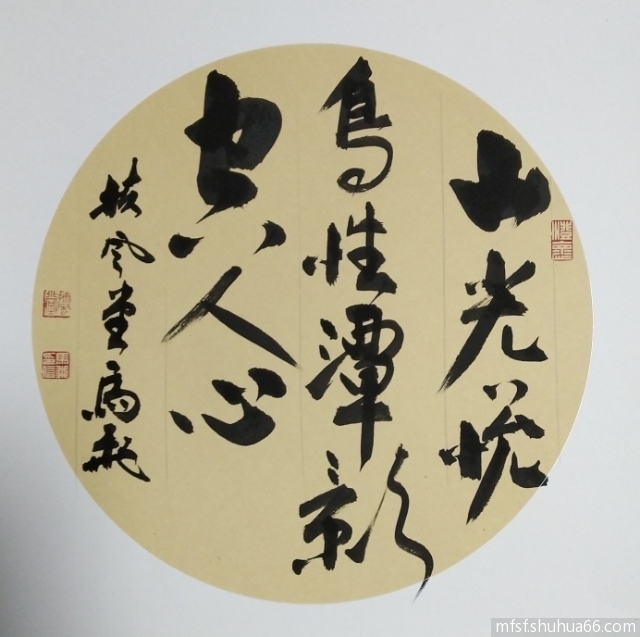 山光悦
鳥性潭影
空人心
扶风堂馬
mfsf.shuhua66.com